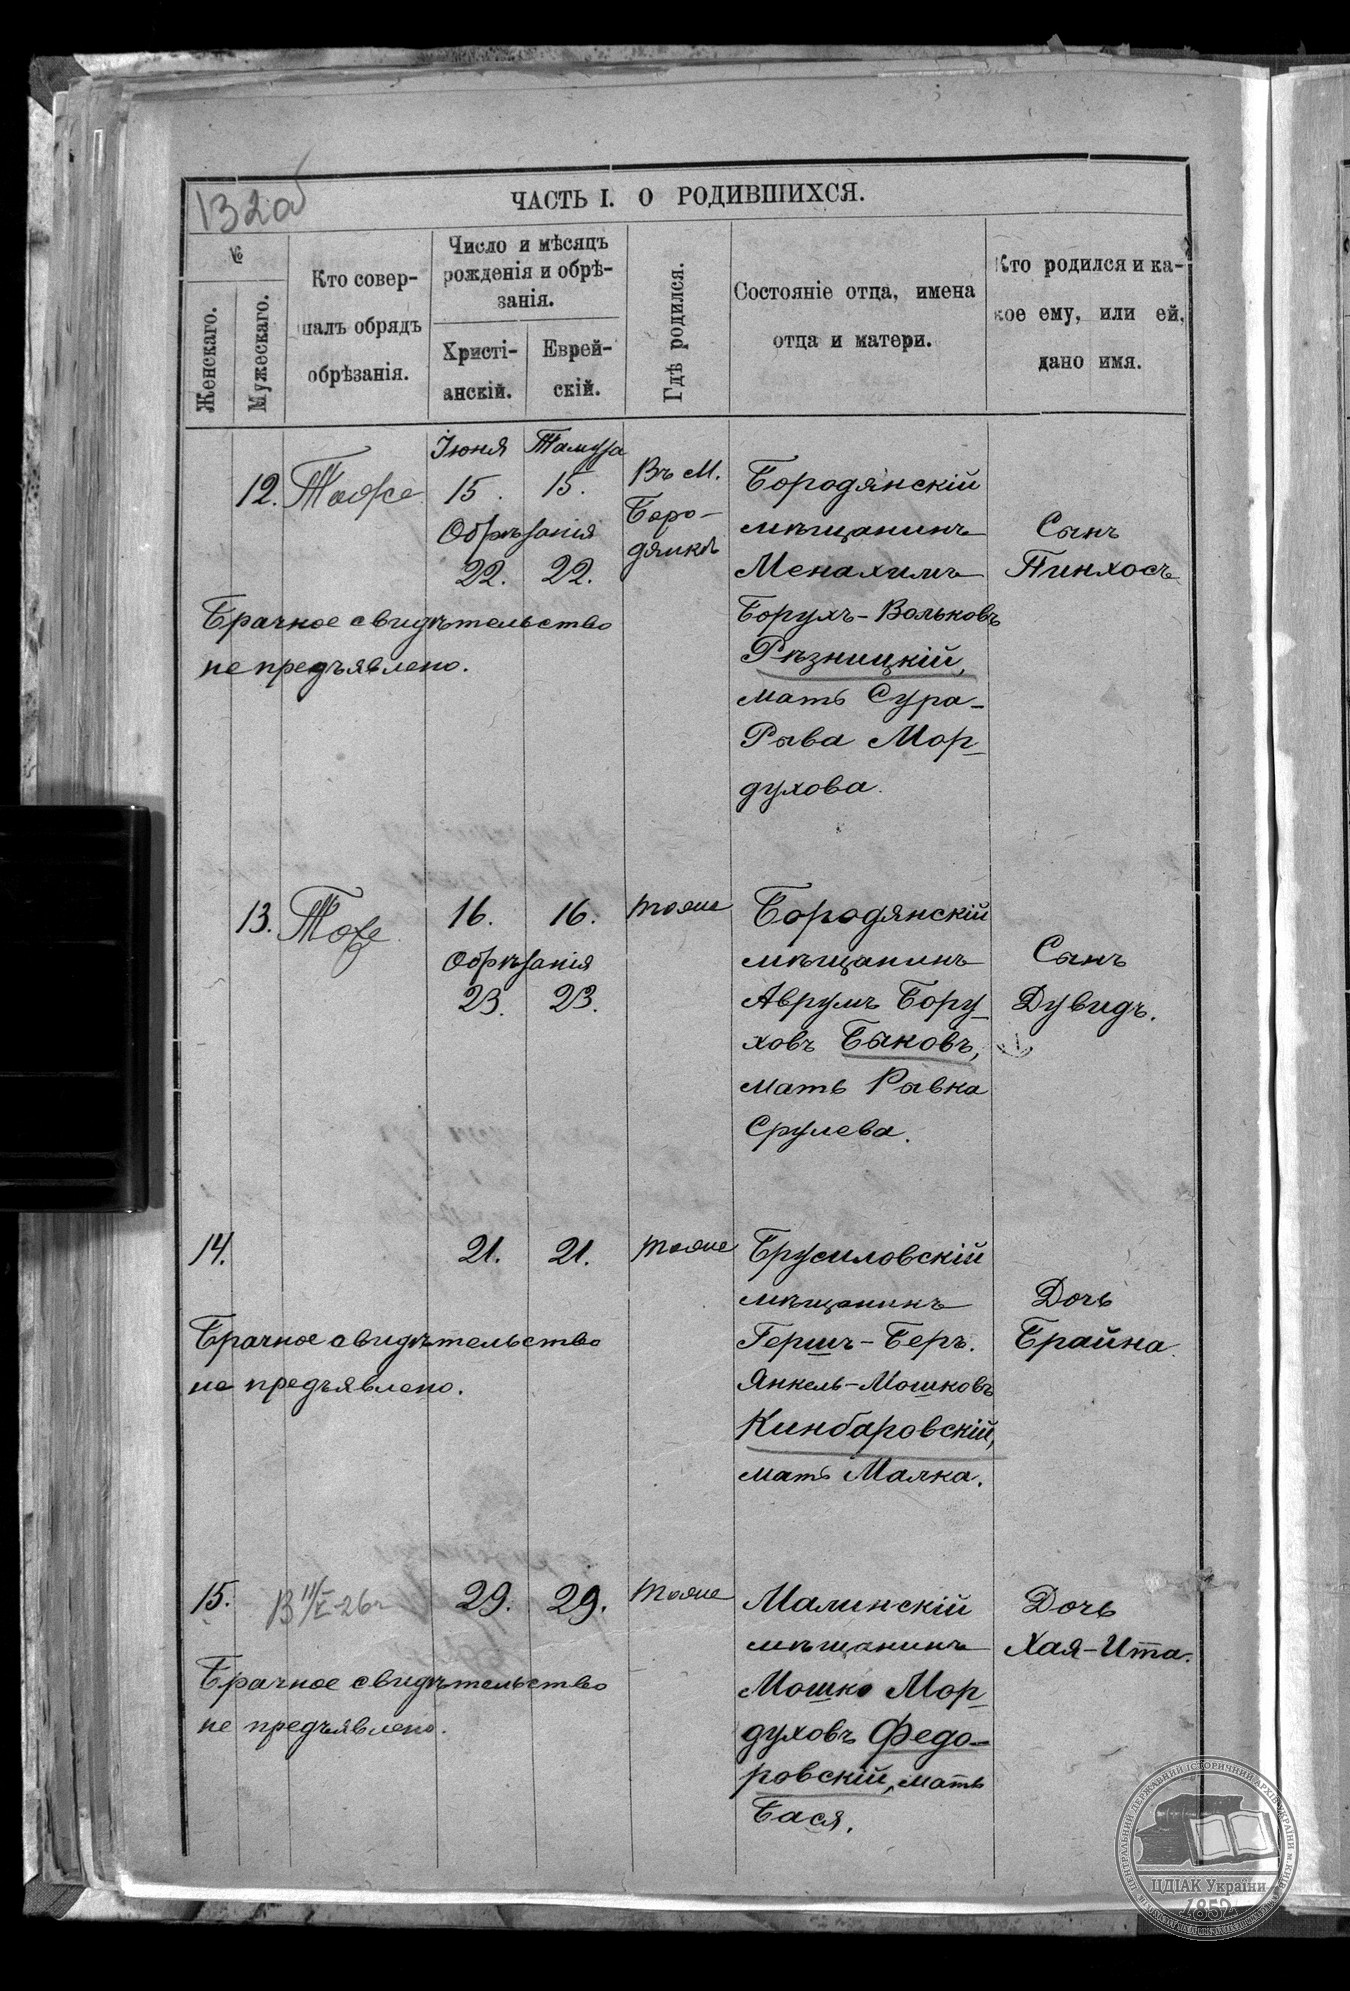 132об
ЧАСТЬ I. О РОДИВШИХСЯ.
№
Женскаго.
Мужескаго.
Кто совер-
шалъ обрядъ
обрѣзанія.
Число и мѣсяцъ
рожденія и обрѣ-
занія.
Христі-
анскій.
Еврей-
скій.
Гдѣ родился.
Состояніе отца, имена
отца и матери.
Кто родился и ка-
кое ему, или ей,
дано имя.
12. Тоже
Іюня Тамуза
15. 15.
Обрѣзанія
22. 22.
Въ М.
Боро-
дянкѣ
Бородянскій
мѣщанинъ
Менахимъ
Борухъ-Вольковъ
Рѣзницкій,
мать Сура-
Рыва Мор-
духова.
Сынъ
Пинхосъ
Брачное свидѣтельство
не предъявлено.
13. Тоже
16. 16.
Обрѣзанія
23. 23.
тоже
Бородянскій
мѣщанинъ
Аврумъ Бору-
ховъ Быковъ,
мать Рывка
Срулева.
Сынъ
Дувидъ.
14.
21. 21.
тоже
Брусиловскій
мѣщанинъ
Гершъ-Беръ.
Янкель-Мошковъ
Кинбаровскій,
мать Малка.
Дочь
Брайна.
Брачное свидѣтельство
не предъявлено.
15.
29. 29.
тоже
Малинскій
мѣщанинъ
Мошко Мор-
духовъ Федо-
ровскій, мать
Бася.
Дочь
Хая-Ита.
Брачное свидѣтельство
не предъявлено.
ЦДІАК України
1852